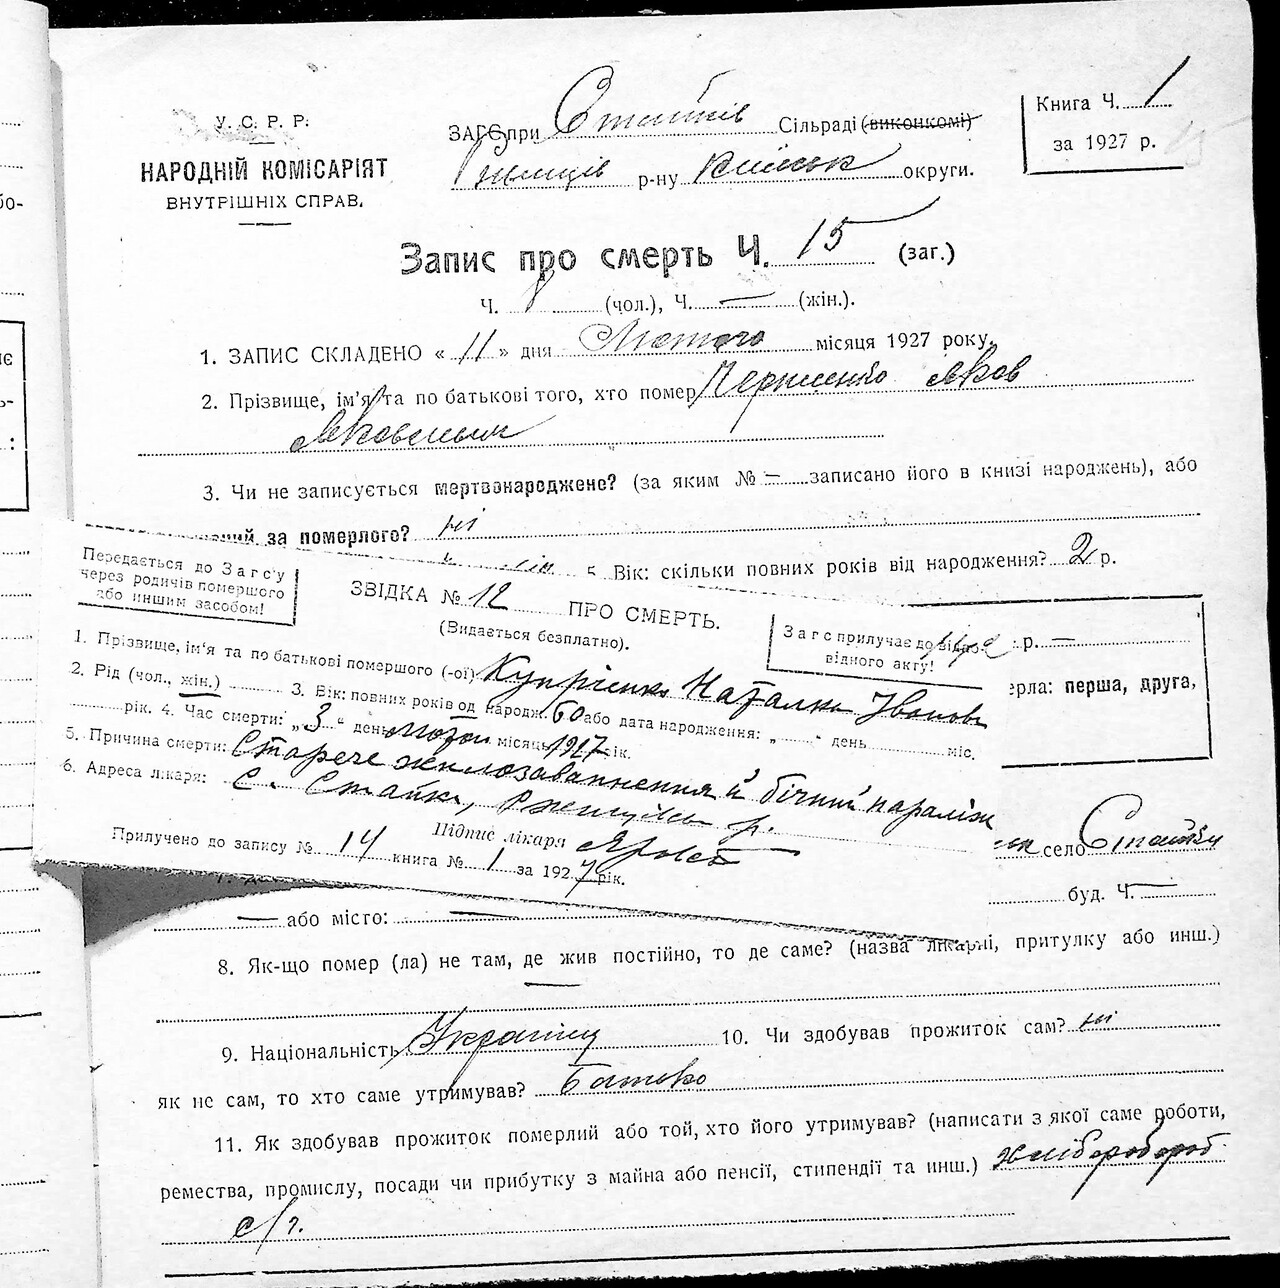 У. С. Р. Р.
НАРОДНІЙ КОМІСАРІЯТ
ВНУТРІШНІХ СПРАВ.
ЗАГС при Стайків Сільраді (виконкомі)
Ржищів р-ну Київськ округи.
Книга Ч. 1
за 1927 р.
Запис про смерть Ч. 15 (заг.)
Ч. 8 (чол.), Ч. — (жін.).
1. ЗАПИС СКЛАДЕНО « 11 » дня Лютого місяця 1927 року.
2. Прізвище, ім'я та по батькові того, хто помер Яков
Яковович
3. Чи не записується мертвонароджено? (за яким № — записано його в книзі народжень), або
за померлого? ні
5 Вік: скільки повних років від народження? 2 р.
Передається до Загс'у
через родичів помершого
або иншим засобом!
ЗВІДКА № 12 ПРО СМЕРТЬ.
(Видається безплатно).
Загс прилучає до відпо-
відного акту!
р. —
1. Прізвище, ім'я та по батькові помершого (-ої) Купрієнко Наталка Іванова
2. Рід (чол., жін.) 3. Вік: повних років од народж. 60 або дата народження: „ “ день міс.
рік. 4. Час смерти: „ 3 “ день лютого місяць 1927 рік.
5. Причина смерти: Старече жилозавапнення й бічний параліж
6. Адреса лікаря: с. Стайки, Ржищів р.
Підпис лікаря
Прилучено до запису № 14 книга № 1 за 1927 рік.
ерла: перша, друга,
село Стайки
буд. Ч. —
— або місто: —
8. Як-що помер (ла) не там, де жив постійно, то де саме? (назва лікарні, притулку або инш.)
—
9. Національність Українц 10. Чи здобував прожиток сам? ні
як не сам, то хто саме утримував? Батько
11. Як здобував прожиток померлий або той, хто його утримував? (написати з якої саме роботи,
ремества, промислу, посади чи прибутку з майна або пенсії, стипендії та инш.) хлібороб
с/г.